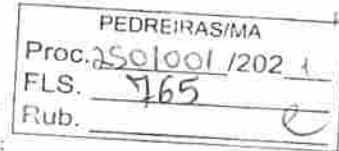 PEDREIRAS/MA
Proc. 2501001 /2021
FLS. 765
Rub.